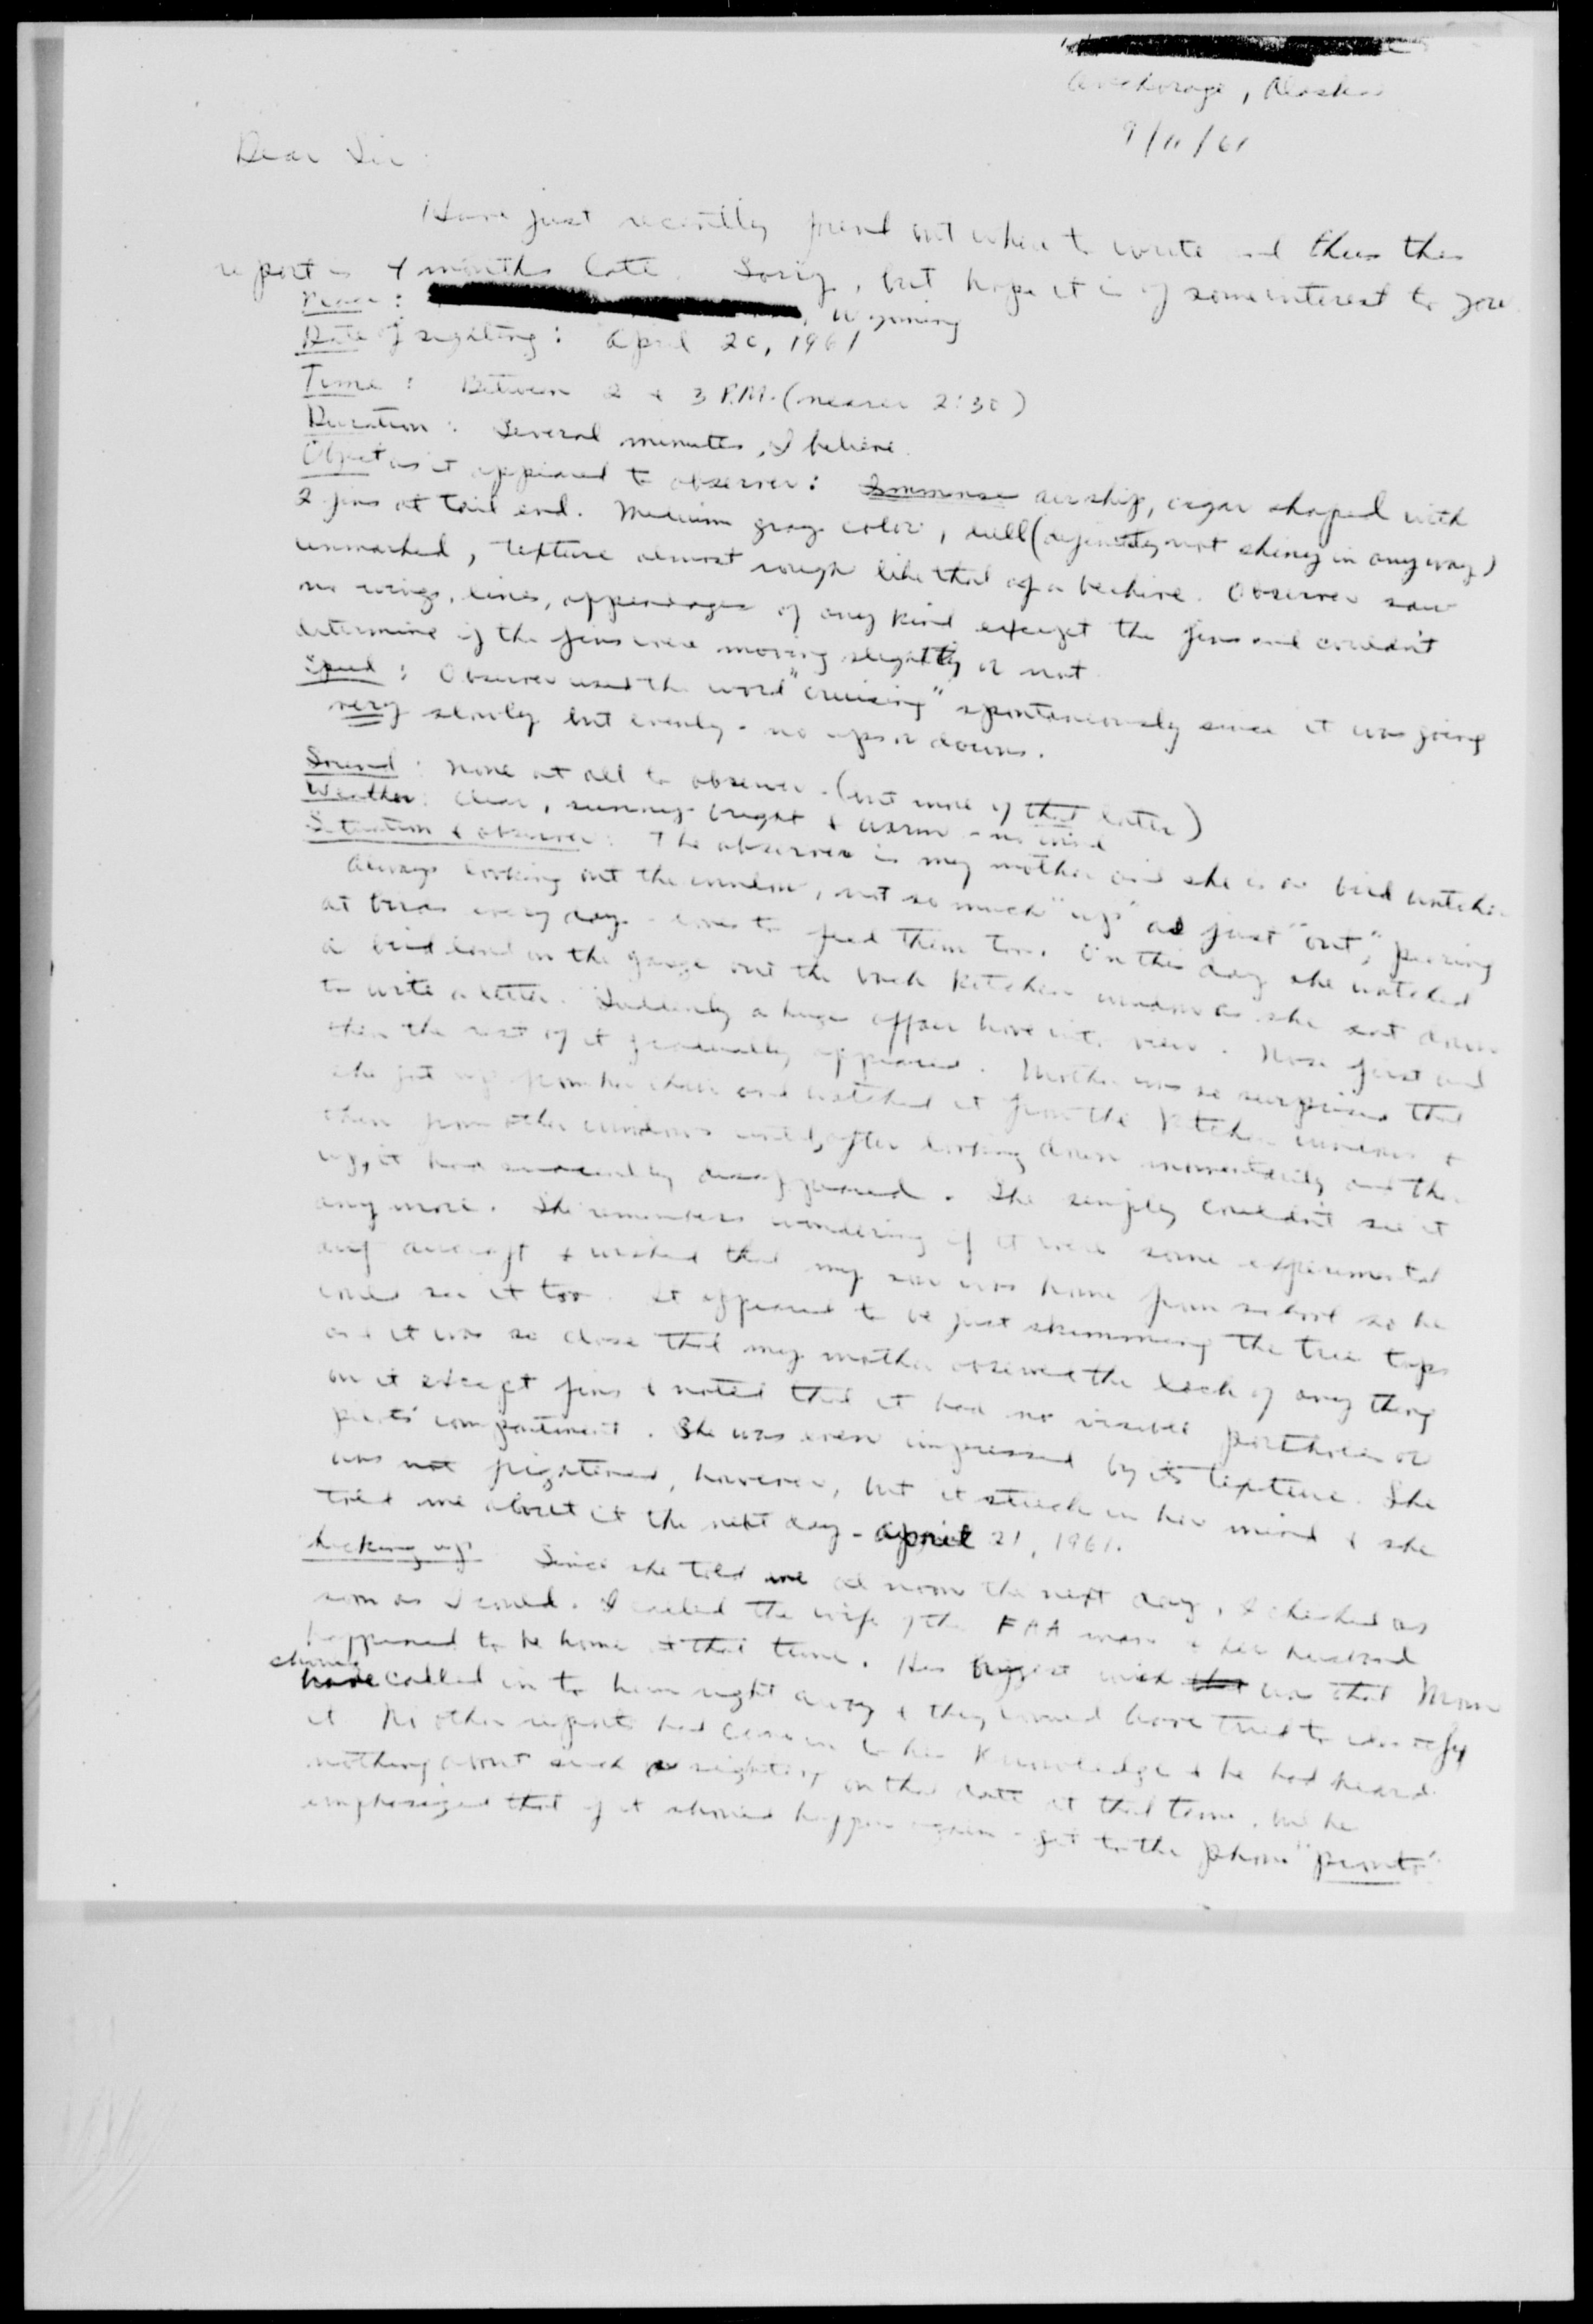 Anchorage, Alaska
9/11/61
Dear Sir:
Have just recently found out where to write and thus this
report is 4 months late. Sorry, but hope it is of some interest to you.
Place: , Wyoming
Date of sighting: April 20, 1961
Time: Between 2 & 3 P.M. (nearer 2:30)
Duration: Several minutes, I believe.
Object as it appeared to observer: Immense airship, cigar shaped with
2 fins at tail end. Medium gray color, dull (definitely not shiny in any way)
unmarked, texture almost rough like that of a beehive. Observer saw
no wings, lines, appendages of any kind except the fins and couldn't
determine if the fins were moving slightly or not.
Speed: Observer used the word "cruising" spontaneously since it was going
very slowly but evenly - no ups or downs.
Sound: None at all to observer - (but more of that later)
Weather: Clear, sunny bright & warm - no wind
Situation & observer: The observer is my mother and she is a bird watcher
Always looking out the window, not so much "up" as just "out", peering
at birds every day - loves to feed them too. On this day she watched
a bird land on the garage out the back kitchen window as she sat down
to write a letter. Suddenly a huge affair hove into view. Nose first and
then the rest of it gradually appeared. Mother was so surprised that
she got up from her chair and watched it from the kitchen windows &
then from other windows until, after looking down momentarily and then
up, it had disappeared. She simply couldn't see it
any more. She remembers wondering if it were some experimental
aircraft & wished that my son was home from school so he
could see it too. It appeared to be just skimming the tree tops
and it was so close that my mother observed the lack of any thing
on it except fins & noted that it had no visible portholes or
pilots' compartment. She was even impressed by its texture. She
was not frightened, however, but it stuck in her mind & she
told me about it the next day - April 21, 1961.
Checking up: Since she told me at noon the next day, I checked as
soon as I could. I called the wife of the FAA man & her husband
happened to be home at that time. His biggest wish was that Mom
should
have called in to him right away & they would have tried to identify
it. No other reports had come in to his knowledge & he had heard
nothing about such a sighting on that date at that time. But he
emphasized that if it should happen again - get to the phone "pronto".